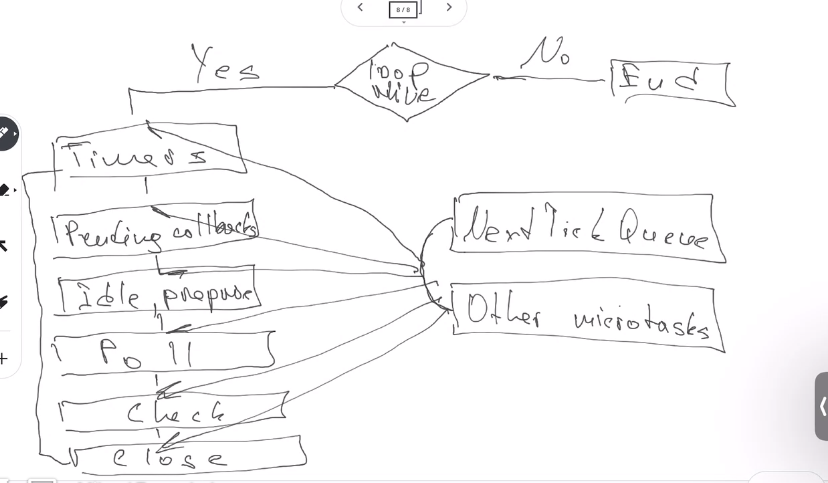 8/8
Yes
loop
alive
No
End
Timers
Pending callbacks
Idle, prepare
Poll
Check
Close
Next Tick Queue
Other microtasks